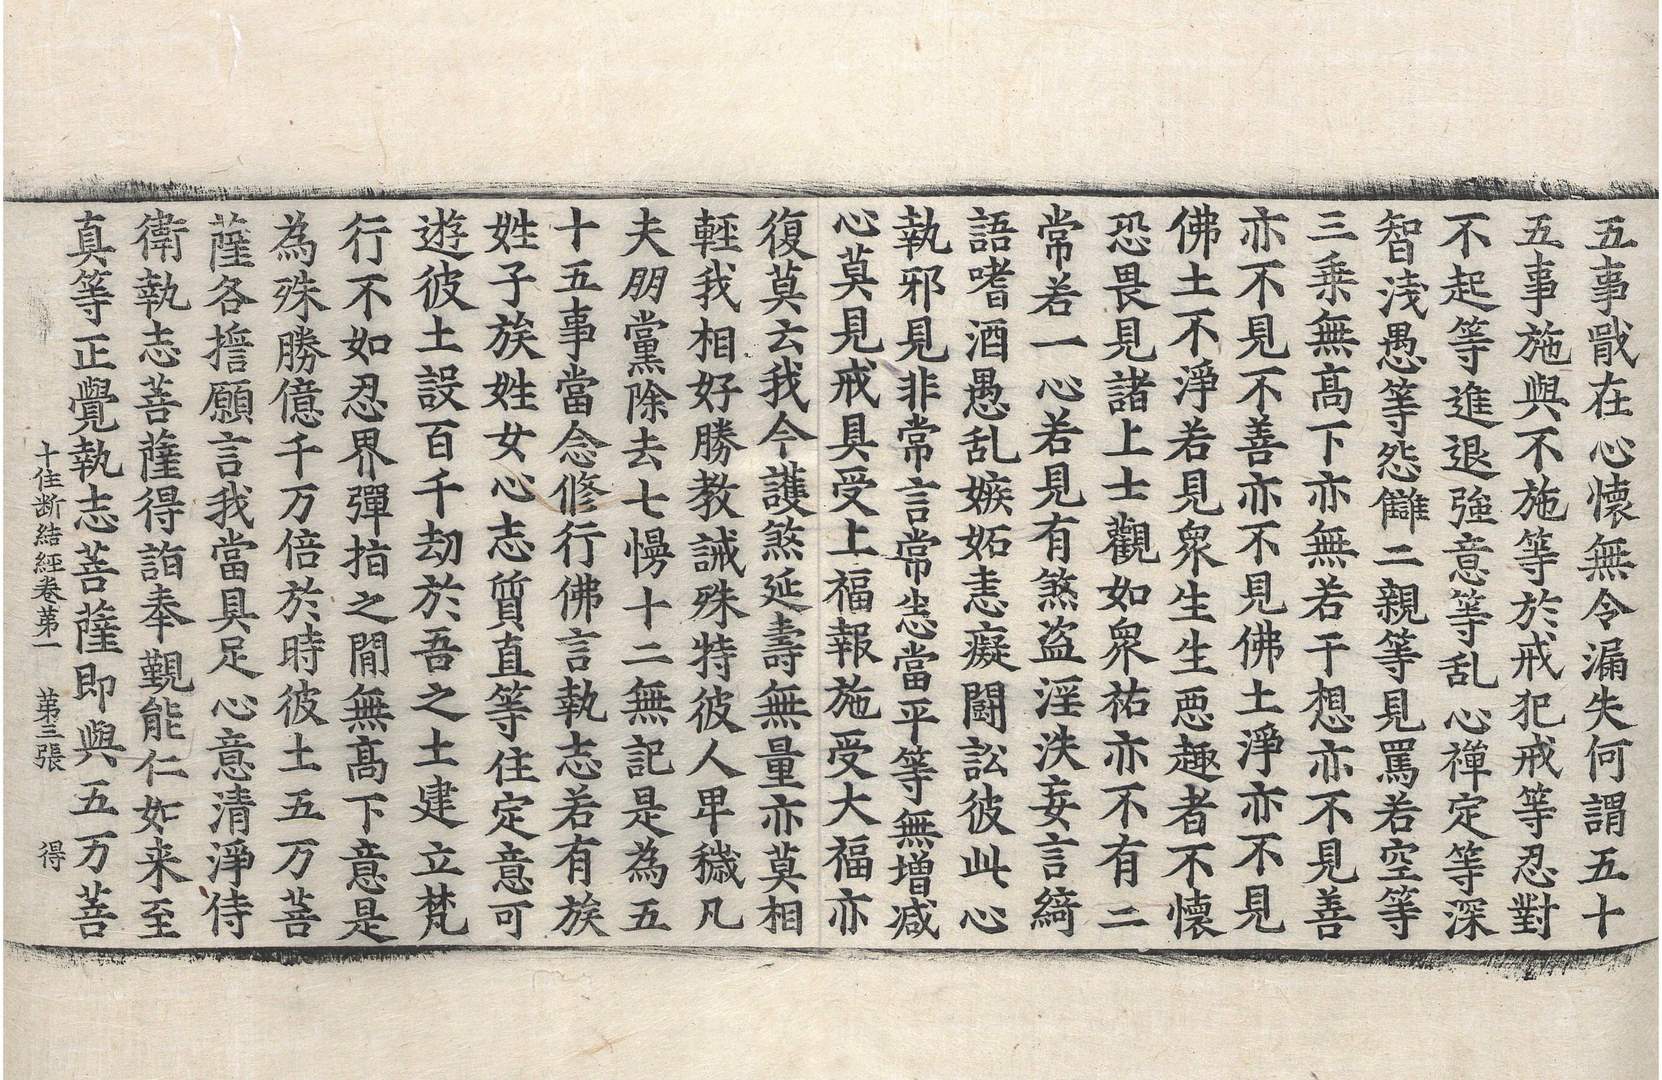 五事戢在心懷無令漏失何謂五十
五事施與不施等於戒犯戒等忍對
不起等進退強意等乱心禪定等深
智淺愚等怨讎二親等見罵若空等
三乗無髙下亦無若干想亦不見善
亦不見不善亦不見佛土淨亦不見
佛土不淨若見衆生生惡趣者不懷
恐畏見諸上士觀如衆祐亦不有二
常若一心若見有煞盜淫泆妄言綺
語嗜酒愚乱嫉妬恚癡鬪訟彼此心
執邪見非常言常恚當平等無增减
心莫見戒具受上福報施受大福亦
復莫云我今護煞延壽無量亦莫相
輕我相好勝教誡殊特彼人卑穢凡
夫朋黨除去七慢十二無記是為五
十五事當念修行佛言執志若有族
姓子族姓女心志質直等住定意可
遊彼土設百千劫於吾之土建立梵
行不如忍界彈指之閒無髙下意是
為殊勝億千万倍於時彼土五万菩
薩各擔願言我當具足心意清淨侍
衛執志菩薩得詣奉覲能仁如来至
真等正覺執志菩薩即與五万菩
十住断結經卷苐一 苐三張 得